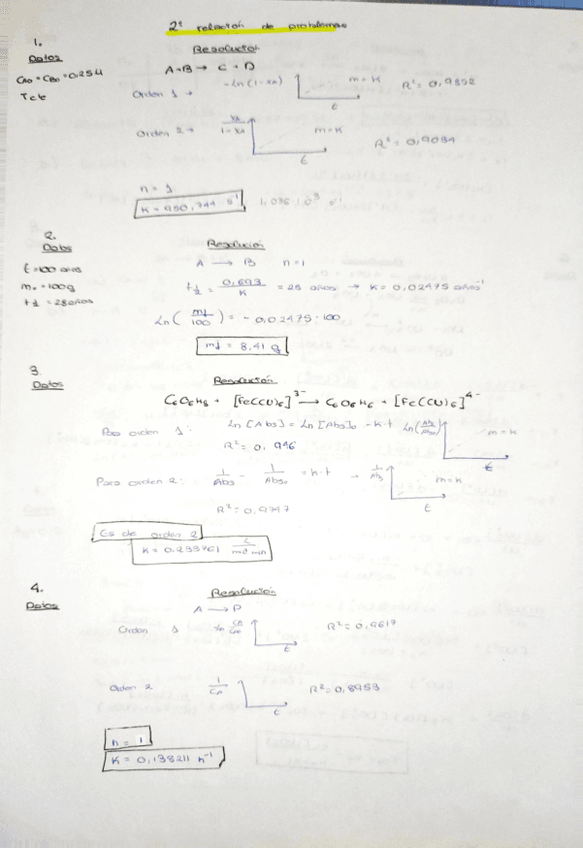 2ª relación de problemas
1.
Datos
Resolución
CA0 = CB0 = 0,25M
T cte
A+B → C + D
Orden 1 → -Ln(1-XA) m = K R² = 0,9892
t
Orden 2 → XA/1-XA m=K R² = 0,9084
t
n = 1
K = 950,744 s⁻¹
2.
Datos
Resolución
t = 100 años
m₀ = 100g
t½ = 28 años
A → B n=1
t½ = 0,693/K = 28 años → K = 0,02475 años⁻¹
Ln(mf/100) = -0,02475·100
mf = 8,41 g
3.
Datos
Resolución
C6O6H8 + [Fe(CN)6]³⁻ → C6O6H6 + [Fe(CN)6]⁴⁻
Para orden 1: Ln[Abs] = Ln[Abs]₀ - K·t m = K
R² = 0,946
t
Para orden 2: 1/Abs - 1/Abs₀ = K·t → 1/Abs m=K
t
R² = 0,9747
Es de orden 2
K = 0,233761 L/mol min
4.
Datos
Resolución
A → P
Orden 1 R² = 0,9617
t
Orden 2 1/CA R² = 0,8953
t
n = 1
K = 0,138211 h⁻¹